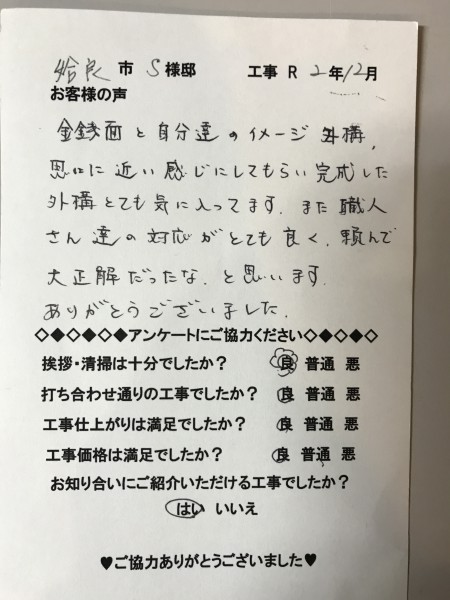 姶良市 S様邸 工事 R 2年12月
お客様の声
金銭面と自分達のイメージ外構,
思いに近い感じにしてもらい完成した
外構とても気に入ってます。また職人
さん達の対応がとても良く、頼んで
大正解だったな。と思います。
ありがとうございました。
◇◆◇◆◇◆アンケートにご協力ください◇◆◇◆◇
挨拶・清掃は十分でしたか? 良 普通 悪
打ち合わせ通りの工事でしたか? 良 普通 悪
工事仕上がりは満足でしたか? 良 普通 悪
工事価格は満足でしたか? 良 普通 悪
お知り合いにご紹介いただける工事でしたか?
はい いいえ
♥ご協力ありがとうございました♥